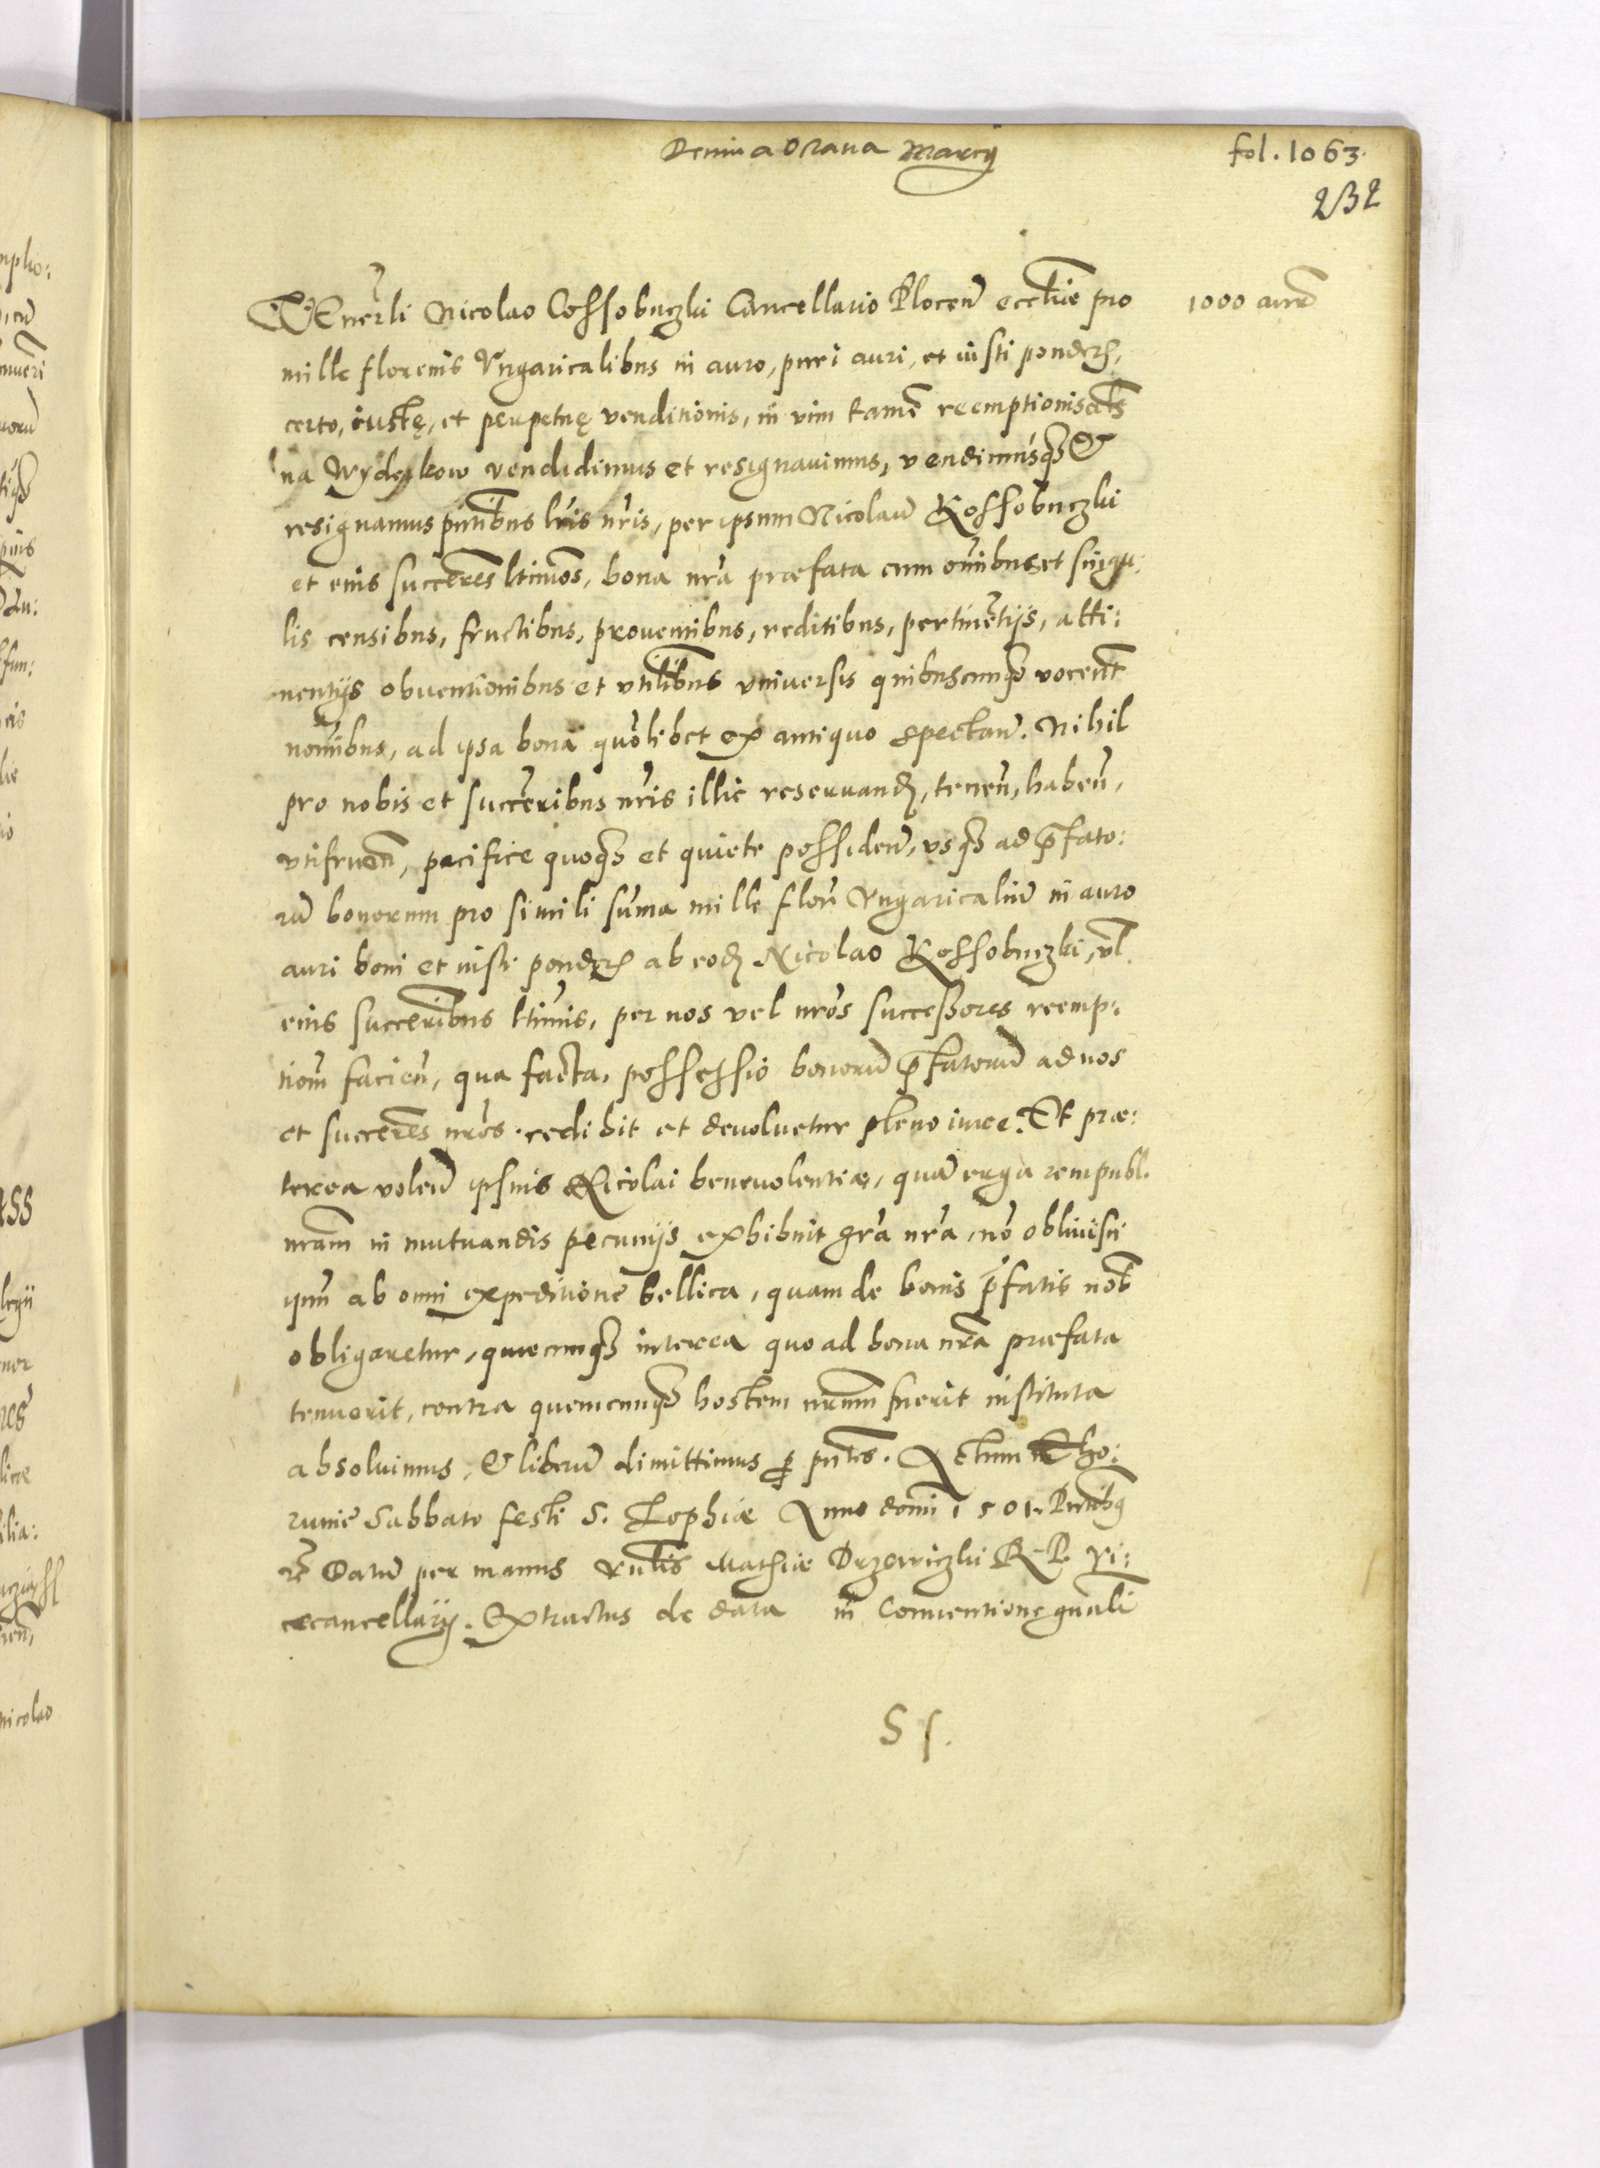 Decima octaua Marcij
fol. 1063.
232
VEnerli Nicolao Cossobuczki Cancellario Plocen eccliae pro
1000 aure
mille florenis Vngaricalibus in auro, puri auri, et iusti ponderis,
certo, iustę, et perpetuę venditionis, in vim tame reemptionis als
na Wyderkow vendidimus et resignauimus, vendimusque &
resignamus pntibus lris nris, per ipsum Nicolau Kossobuczki
et eius succeres ltimos, bona nra praefata cum omnibus et singu:
lis censibus, fructibus, prouentibus, reditibus, pertinetijs, atti:
nentijs obuentionibus et vtilibus vniversis quibuscunque vocent
nominibus, ad ipsa bona quolibet ex antiquo spectan. Nihil
pro nobis et succeribus nris illic reseruand, tenen, haben,
vtifruen, pacifice quoque et quiete possiden, vsque ad pfato:
ru bonorum pro simili suma mille flor Vngaricaliu in auro
auri boni et iusti ponderis ab eod Nicolao Kossobuczki, vl
eius succeribus ltimis, per nos vel nros successores reemp:
tiom facien, qua facta, possessio bonoru pfatoru ad nos
et succeres nros redibit et deuoluetur pleno iure. Et prae:
terea volen ipsius Nicolai beneuolentiae, qua erga rempubl.
nram in mutuandis pecunijs exhibuit gra nra, no obliuisci
ipm ab omni expeditione bellica, quam de bonis pfatis nob
obligaretur, quecunque interea quo ad bona nra praefata
tenuerit, contra quemcunque hostem nrum fuerit instituta
absoluimus, & liberu dimittimus p pntes. Actum Tho:
runie Sabbato festi S. Sophiae Anno domi 1501. Pntibus
rc Datu per manus Rndis Mathiae Drzewiczki R. P. Vi:
cecancellarij. Extractus de data in Conuentione gnali
S s.